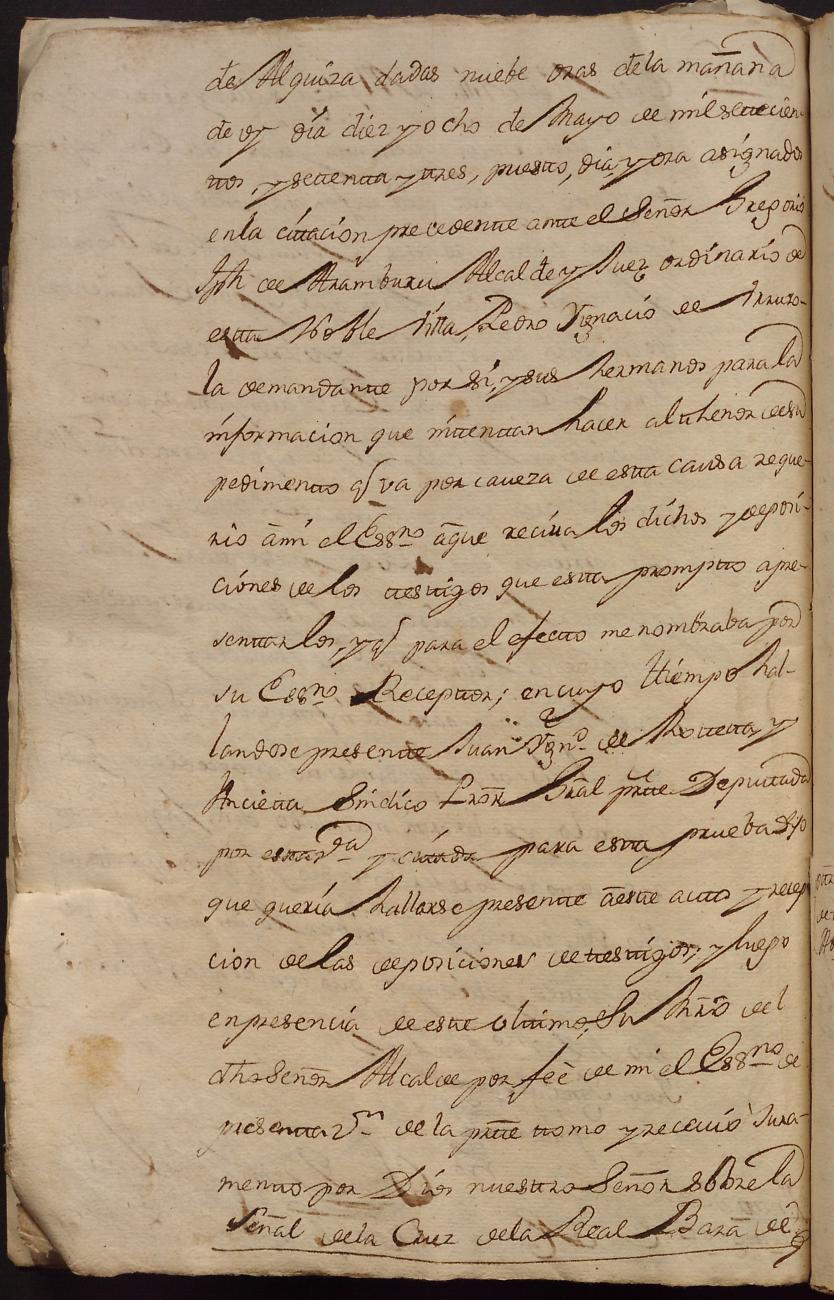 de Alquiza dadas nuebe oras de la mañana
de oy día diez y ocho de Mayo de mil setecien-
tos, y setenta y tres, puesto, dia, y ora asignados
en la citacion precedente ante el Señor Gregorio
Jph de Aramburu Alcalde y Juez ordinario de
esta Noble Villa, Pedro Ygnacio de Iruro-
la demandante por sí, y sus hermanos para la
informacion que intentan hacer al thenor de su
pedimento q̃ va por caveza de esta causa reque-
rio ã mi el Essno ã que reciva los dichos y deposi-
ciones de los testigos que esta prompto apre-
sentarlos, y q̃ para el efecto me nombraba por
su Essno Receptor; en cuyo ttiempo hal-
landose presente Juan Ygno de Rotteta y
Ancieta Sindico Pror Gral prte Deputada
por esta Va y citada para esta prueba dijo
que quería hallarse presente ã este auto y recep
cion de las deposiciones de testigos; y luego
en presencia de este ultimo, Su Mrd del
dho Señor Alcalde por feè de mi el Essno de
presentazn de la prte tomo y recevió Jura-
mento por Dios nuestro Señor sobre la
Señal de la Cruz de la Real Bara de